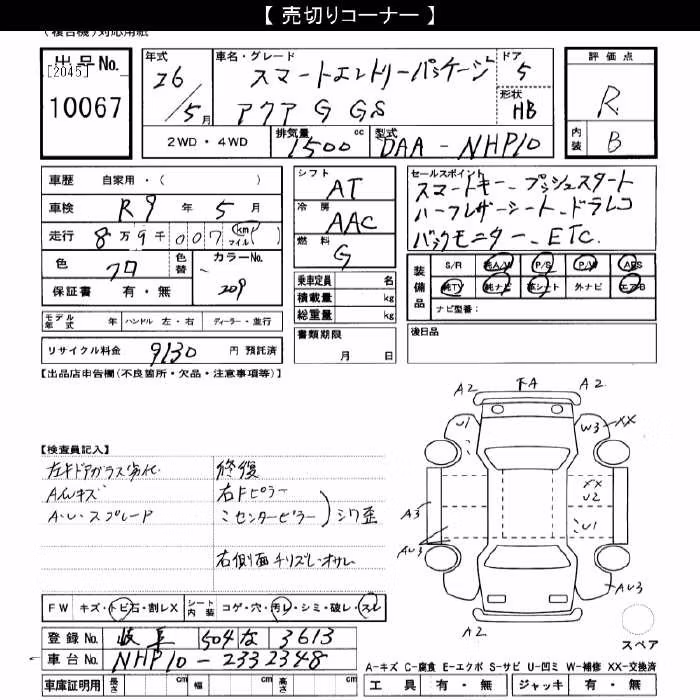 【 売切りコーナー 】
(複合機)対応用紙
出品No.
[2045]
10067
年式
26/5月
車名・グレード
スマートエントリーパッケージ
アクア G GS
ドア
5
形状
HB
評価点
R
内装
B
2WD・4WD
排気量
1500 cc
型式
DAA-NHP10
車歴 自家用・( )
車検 R9年 5月
走行 8万9千007 (km マイル)
色 クロ
色替
カラーNo.
209
保証書 有・無
シフト
AT
冷房
AAC
燃料
G
乗車定員 名
積載量 kg
総重量 kg
書類期限
月 日
セールスポイント
スマートキー、プッシュスタート
ハーフレザーシート、ドラレコ
バックモニター、ETC.
装備品
S/R 純A/W P/S P/W ABS
純TV 純ナビ 革シート 外ナビ エアB
ナビ型番:
後日品
モデル年式 年 ハンドル 左・右 ディーラー・並行
リサイクル料金 9130 円 預託済
【出品店申告欄(不良箇所・欠品・注意事項等)】
【検査員記入】
左Fドアガラス劣化
A/Wキズ
A・U・スプレード
修復
右Fピラー
〃センターピラー
シワ歪
右側面チリズレ・オサレ
A2 FA A2
U1
W3 XX
XX
U2
U1
A3
AU3
AU3
FW キズ・トビ石・割レX
シート内装 コゲ・穴・汚レ・シミ・破レ・スレ
登録No. 岐阜 504 な 3613
車台No. NHP10-2332348
車庫証明用 長さ cm 幅 cm 高さ cm
スペア
A-キズ C-腐食 E-エクボ S-サビ U-凹ミ W-補修 XX-交換済
工具 有・無 ジャッキ 有・無